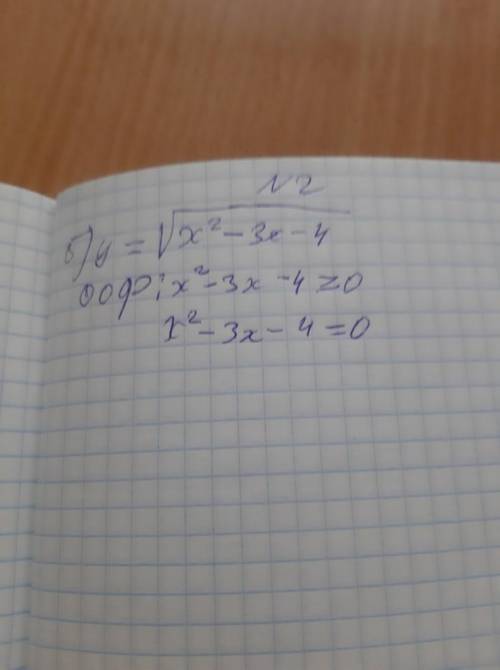 N2
б) y = √x² - 3x - 4
ООФ: x² - 3x - 4 ≥ 0
x² - 3x - 4 = 0